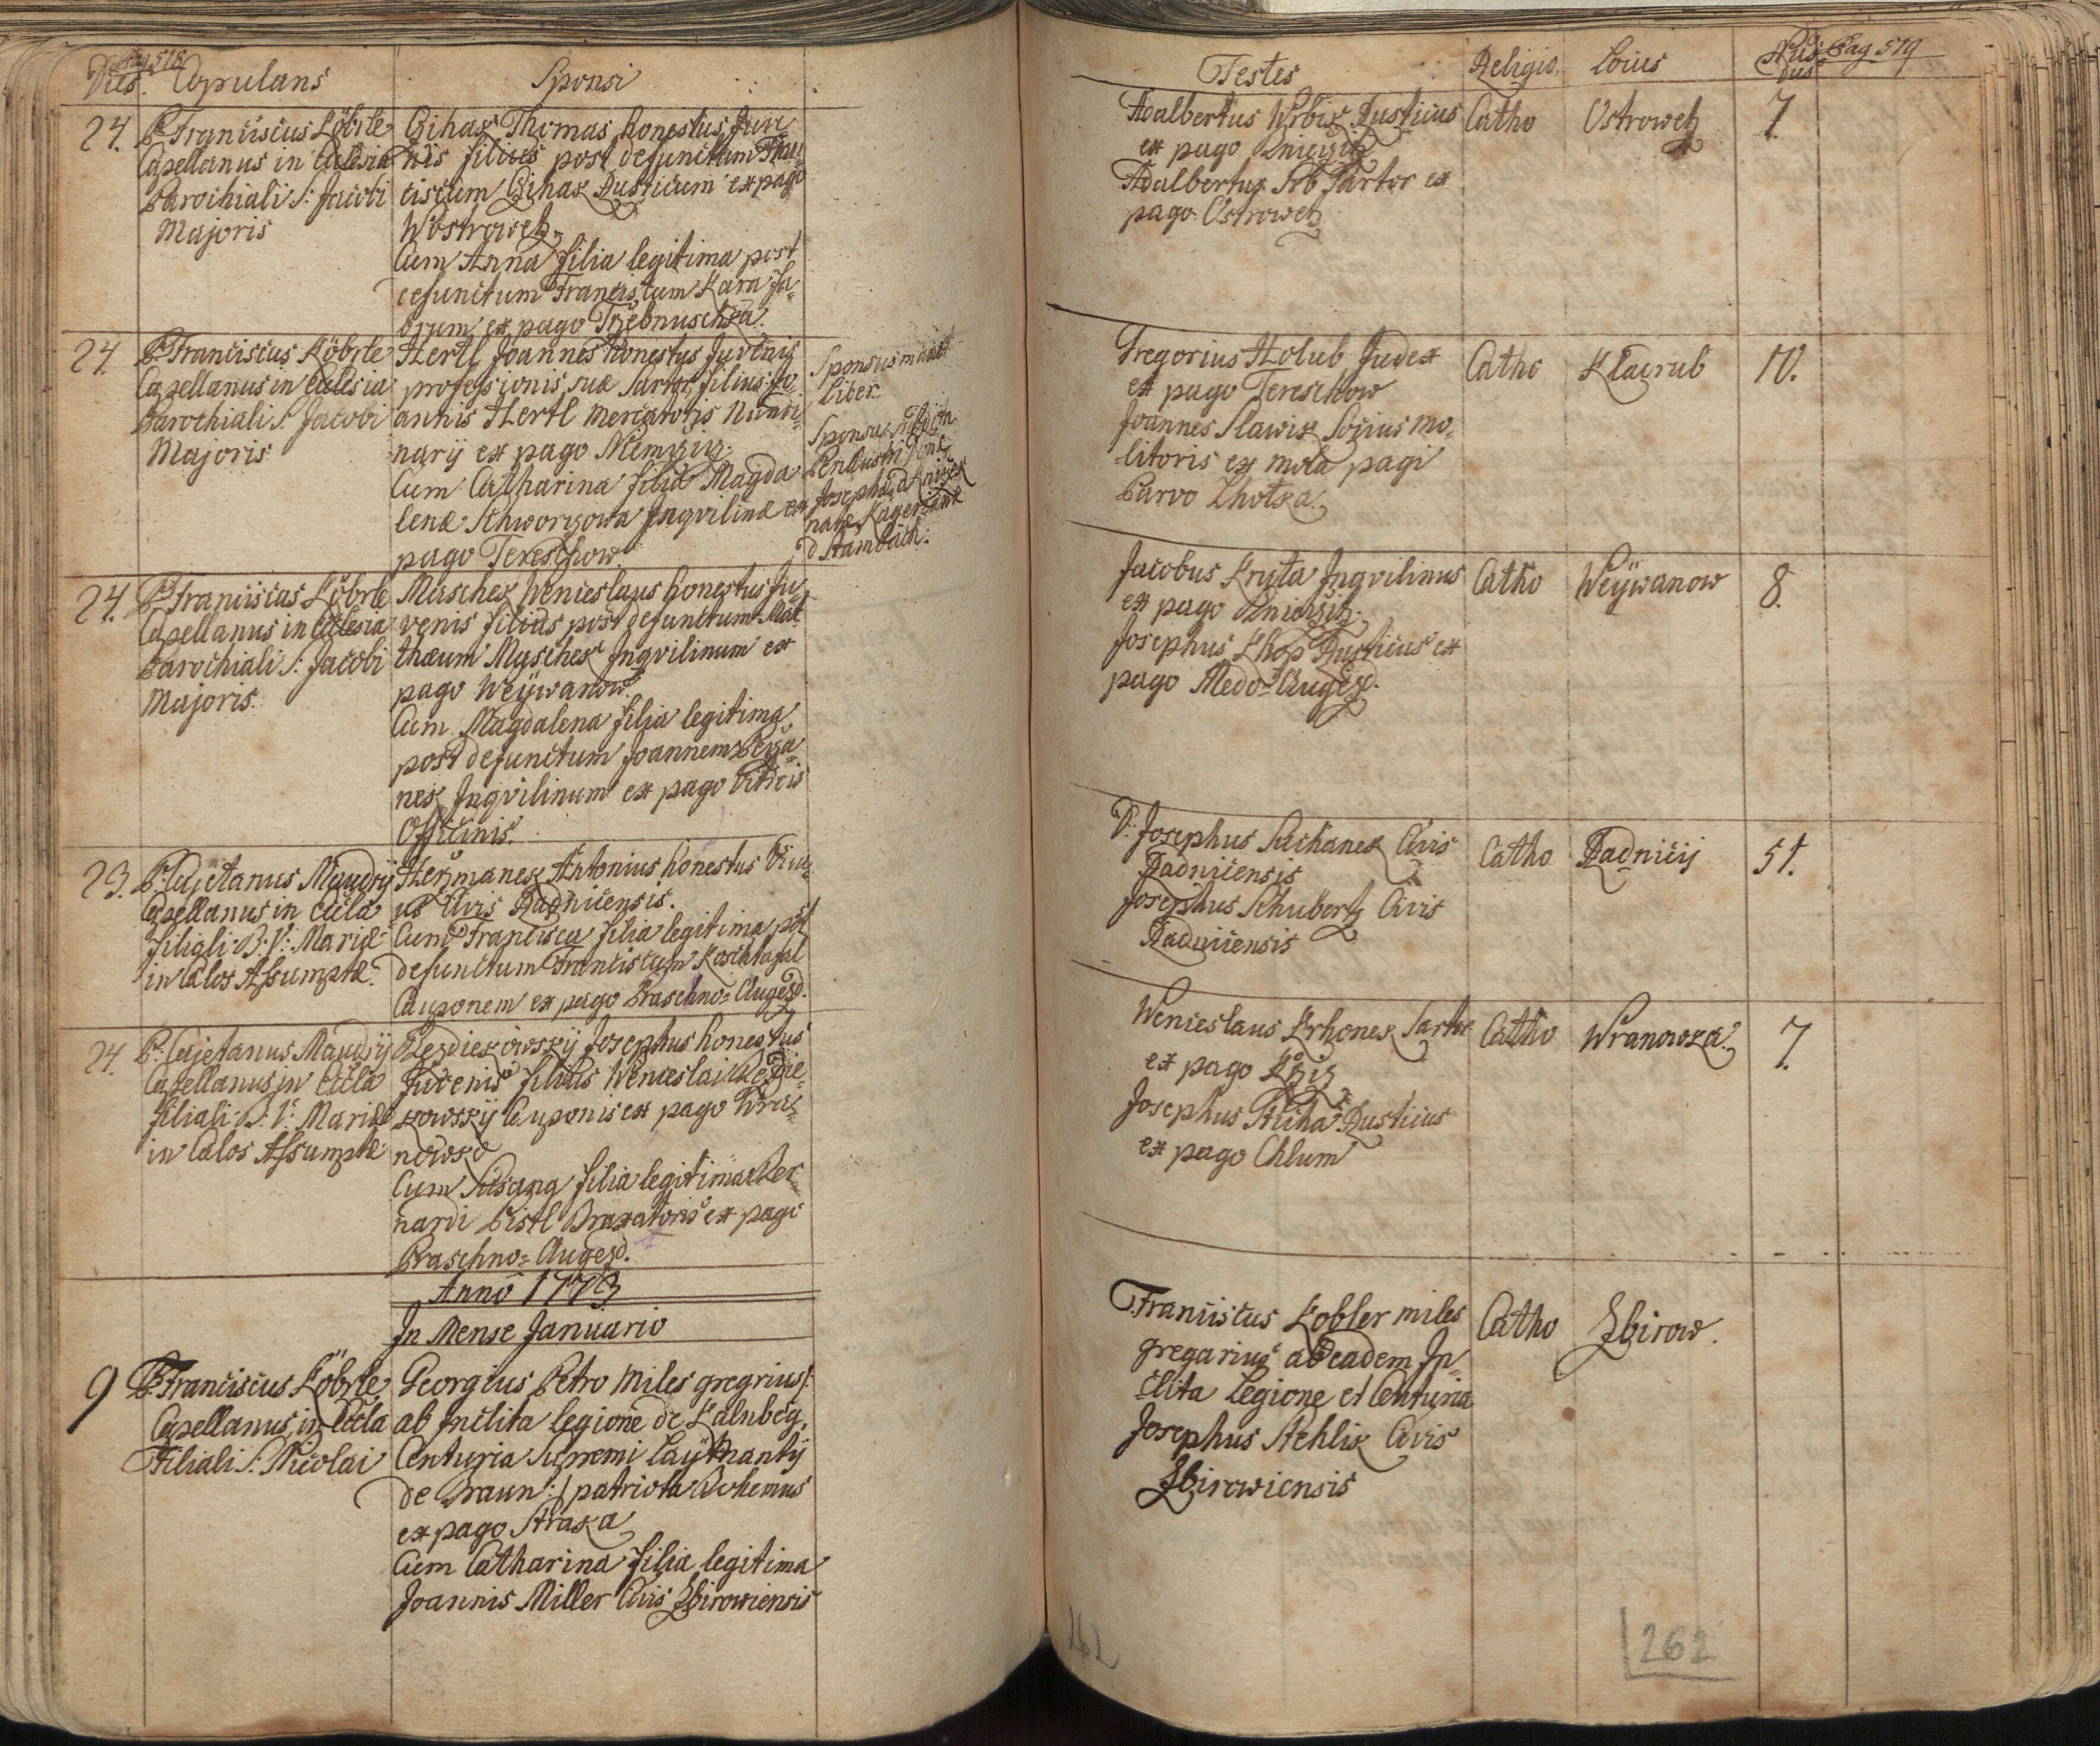 Pag 518
Dies. Copulans Sponsi
24. P. Franciscus Köbrle
Capellanus in Ecclesia
Parochiali S: Jacobi
Majoris
Czihak Thomas honestus Juve
nis filius post defunctum Fran
ciscum Czihak Rusticum ex pago
Wostrowetz
Cum Anna filia legitima post
defunctum Franciscum Kara Fa-
brum ex pago Trzebnuschka.
24. P. Franciscus Köbrle
Capellanus in Ecclesia
Parochiali S. Jacobi
Majoris
Hertl Joannes honestus Juvenis
professionis suæ Sartor filius Jo-
annis Hertl Mercatoris Nundi-
narij ex pago
Cum Catharina filia Magda
lenæ Schworzowa Inqvilinæ ex
pago Tereschow.
Sponsus manet
liber.
Sponsa
24. P. Franciscus Köbrle
Capellanus in Ecclesia
Parochiali S: Jacobi
Majoris.
Muschek Wenceslaus honestus Ju
venis filius post defunctum Mat-
thæum Muschek Inqvilinum ex
pago Weÿwanow.
Cum Magdalena filia legitima
post defunctum Joannem
nek Inqvilinum ex pago Vitreis
Officinis.
23. P. Cajetanus Maudrÿ
Capellanus in Eccla
filiali B: V: Mariæ
in Cælos Assumptæ.
Herzmanek Antonius honestus Vidu-
us Civis Radnicensis.
Cum Francisca filia legitima post
defunctum Franciscum
Cauponem ex pago Praschno=Augezd.
24. P. Cajetanus Maudrÿ
Capellanus in Eccla
filiali B. V: Mariæ
in Cælos Assumptæ
Hezdiekowskÿ Josephus honestus
Juvenis filius Wenceslai Hezdie-
kowskÿ Cauponis ex pago Wra-
nowka
Cum Susana filia legitima Ber-
nardi Pistl Braxatoris ex pago
Praschno=Augezd.
Anno 1773
In Mense Januario
9 P. Franciscus Köbrle
Capellanus in Eccla
Filiali S: Nicolai
Georgius Petro Miles gregrius /:
ab Inclita legione de Kalnbeg,
Centuria Supremi Laÿtnantÿ
de Braun :/ patriota Bohemus
ex pago Straka
Cum Catharina filia legitima
Joannis Miller Civis Zbirowiensis
Testes Religio. Locus Pag 519
Adalbertus Wrbik Rusticus
ex pago
Adalbertus Srb Sartor ex
pago Ostrowetz
Catho Ostrowetz 7.
Gregorius Holub Judex
ex pago Tereschow
Joannes Slawik Socius mo-
litoris ex mola pagi
Parvo Lhotka.
Catho Kladrub 10.
Jacobus Kryta Inqvilinus
ex pago
Josephus Rusticus ex
pago Medo=Augezd.
Catho Weÿwanow 8.
D: Josephus Suchanek Civis
Radnicensis
Josephus Schubertz Civis
Radnicensis
Catho Radnicÿ 51.
Wenceslaus Krhonek Sartor
ex pago
Josephus Rusticus
ex pago Chlum
Catho Wranowka 7.
Franciscus Kobler miles
gregarius ab eadem In-
clita Legione et Centuria
Josephus Stehlik Civis
Zbirowiensis
Catho Zbirow.
262